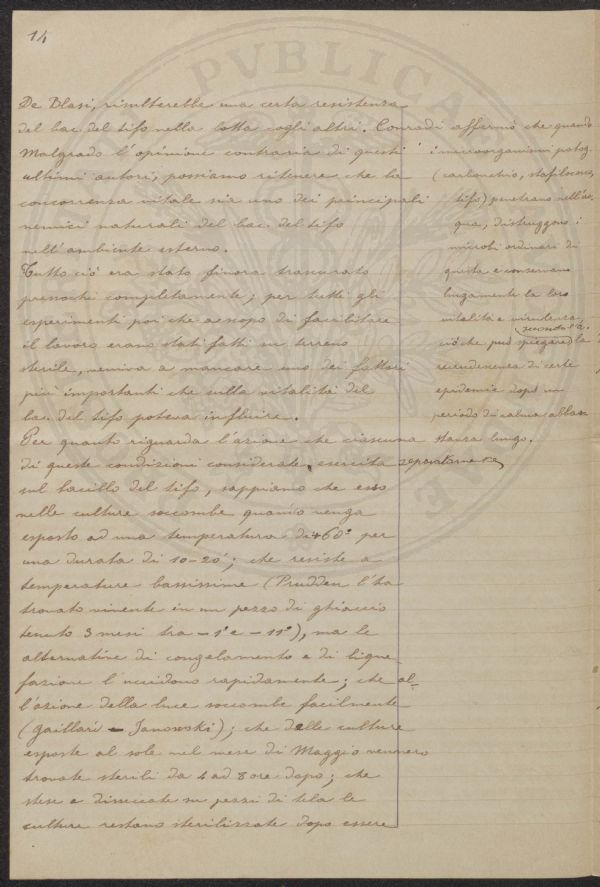 14
De Blasi, risulterebbe una certa resistenza
del bac. del tifo nella lotta cogli altri.
Malgrado l'opinione contraria di questi
ultimi autori, possiamo ritenere che la
concorrenza vitale sia uno dei principali
nemici naturali del bac. del tifo
nell'ambiente esterno.
Tutto ciò era stato finora trascurato
pressochè completamente; per tutti gli
esperimenti poi che a scopo di facilitare
il lavoro erano stati fatti su terreno
sterile, veniva a mancare uno dei fattori
più importanti che sulla vitalità del
bac. del tifo poteva influire.
Per quanto riguarda l'azione che ciascuna
di queste condizioni considerate esercita separatamente
sul bacillo del tifo, sappiamo che esso
nelle culture soccombe quando venga
esposto ad una temperatura di +60° per
una durata di 10-20'; che resiste a
temperature bassissime (Prudden l'ha
trovato vivente in un pezzo di ghiaccio
tenuto 3 mesi tra -1° e -11°), ma le
alternative di congelamento e di lique
fazione l'uccidono rapidamente; che al-
l'azione della luce soccombe facilmente
(Gaillard - Janowski); che delle culture
esposte al sole nel mese di Maggio vennero
trovate sterili da 4 ad 8 ore dopo; che
stese e disseccate su pezzi di tela le
culture restano sterilizzate dopo essere
Conradi affermò che quando
i microorganismi patog.
(carbonchio, stafilococco,
tifo) penetrano nell'ac
qua, distruggono i
microbi ordinari di
questa e conservano
lungamente la loro
vitalità e virulenza,
secondo l'A.
ciò che può spiegare la
recrudescenza di certe
epidemie dopo un
periodo di calma abba
stanza lungo.
PVBLICA